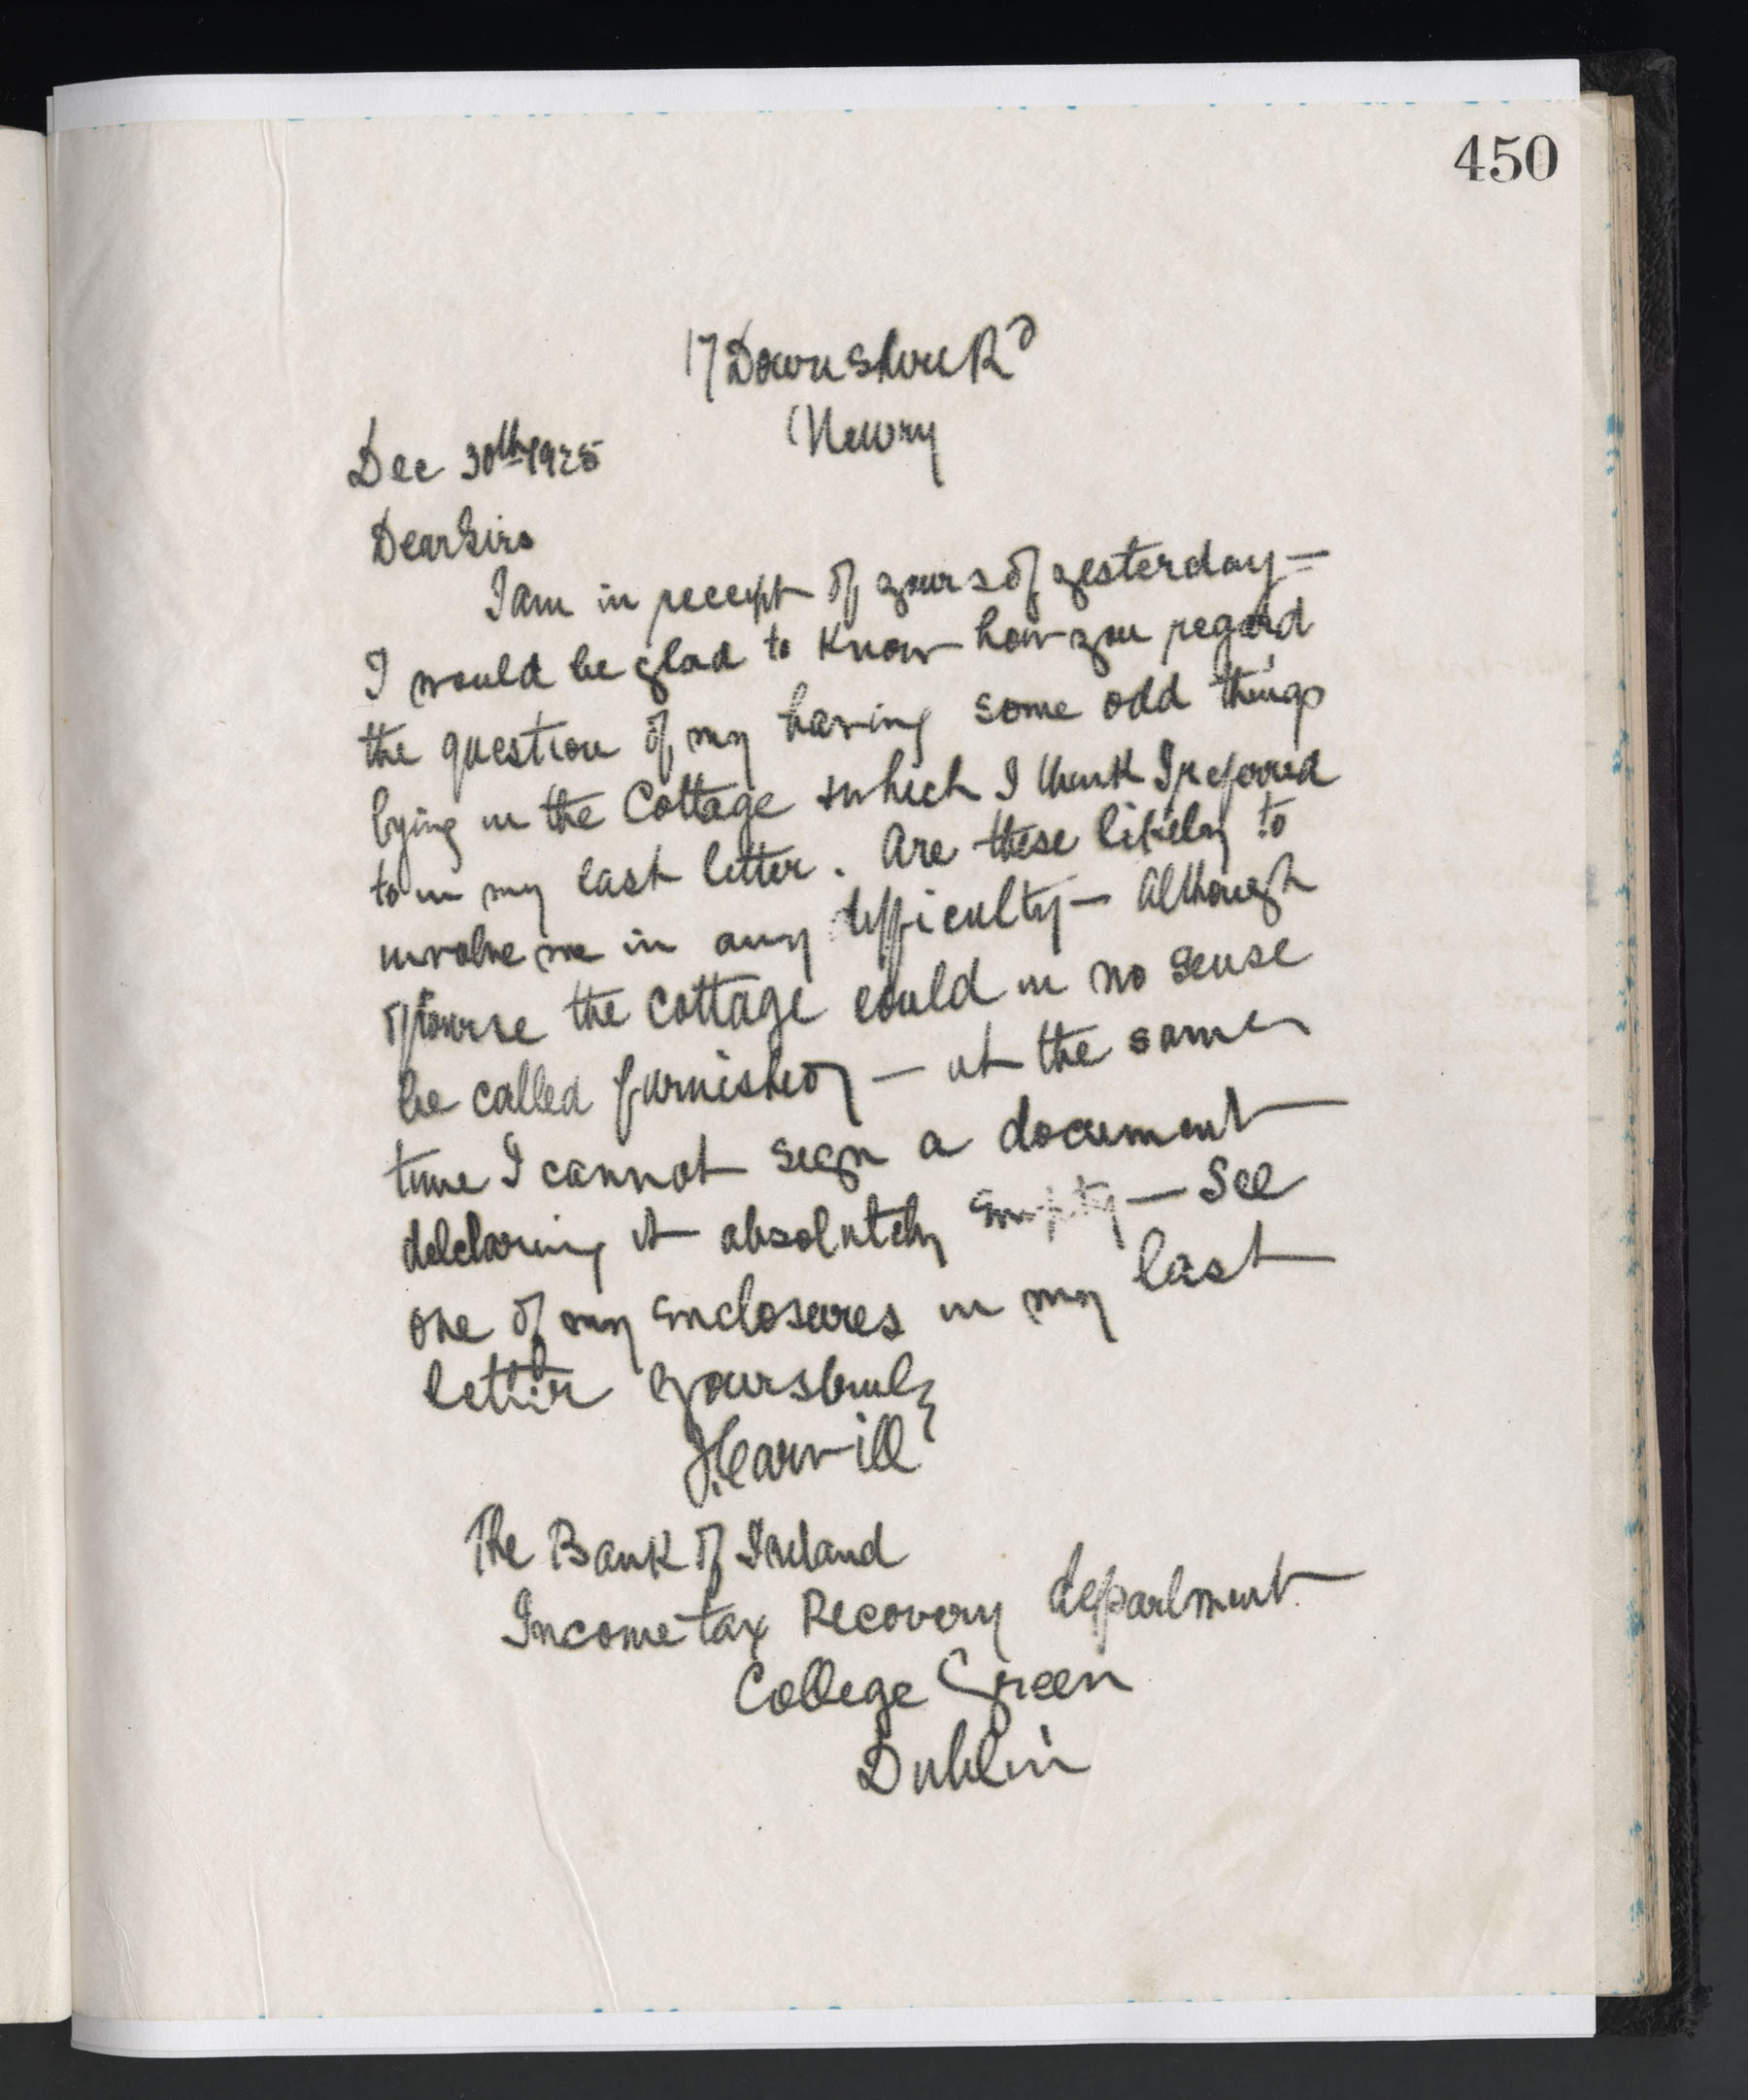 450
17 Downshire Rd
Newry
Dec 30th 1925
Dear Sirs
I am in receipt of yours of yesterday —
I would be glad to know how you regard
the question of my having some odd things
lying in the Cottage which I think I referred
to in my last letter. Are these likely to
involve me in any difficulty — Although
of course the cottage could in no sense
be called furnished — at the same
time I cannot sign a document
delclaring it absolutely Empty — See
one of my Enclosures in my last
letter yours truly
J. Carvill
The Bank of Ireland
Income tax Recovery department
College Green
Dublin